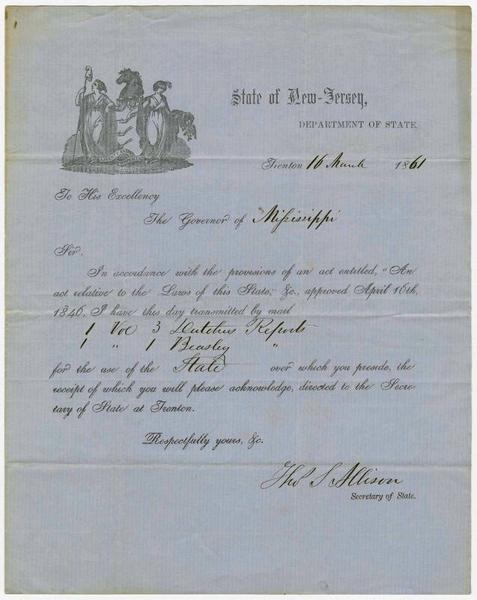 State of New-Jersey,
DEPARTMENT OF STATE,
Trenton 16 March 1861
To His Excellency
The Governor of Mississippi
Sir.
In accordance with the provisions of an act entitled, "An
act relative to the Laws of this State," &c., approved April 16th,
1846, I have this day transmitted by mail
1 Vol 3 Dutchers Reports
1 " 1 Beasley "
for the use of the State over which you preside, the
receipt of which you will please acknowledge, directed to the Secre-
tary of State at Trenton.
Respectfully yours, &c.
Tho S Allison
Secretary of State.